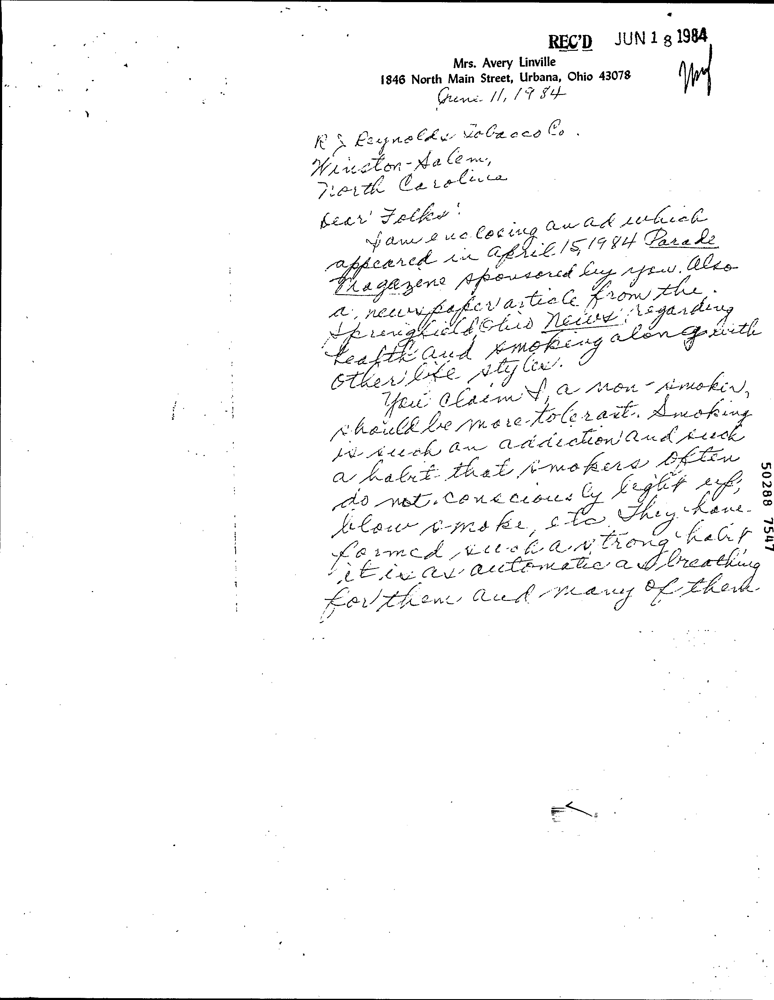 REC'D JUN 18 1984
Mrs. Avery Linville
1846 North Main Street, Urbana, Ohio 43078
June 11, 1984
R J Reynolds Tobacco Co.
Winston-Salem,
North Carolina
Dear Folks:
I am enclosing an ad which
appeared in April 15, 1984 Parade
Magazene sponsored by you. Also
a newspaper article from the
Springfield, Ohio News regarding
health and smoking along with
other life styles.
You claim I, a non-smoker,
should be more tolerant. Smoking
is such an addiction and such
a habit that smokers often
do not consciously light up,
blow smoke, etc. They have
formed such a strong habit
it is as automatic as breathing
for them and many of them
50288 7547